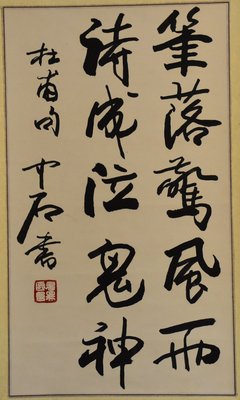 筆落驚風雨
詩成泣鬼神
杜甫句
中石書